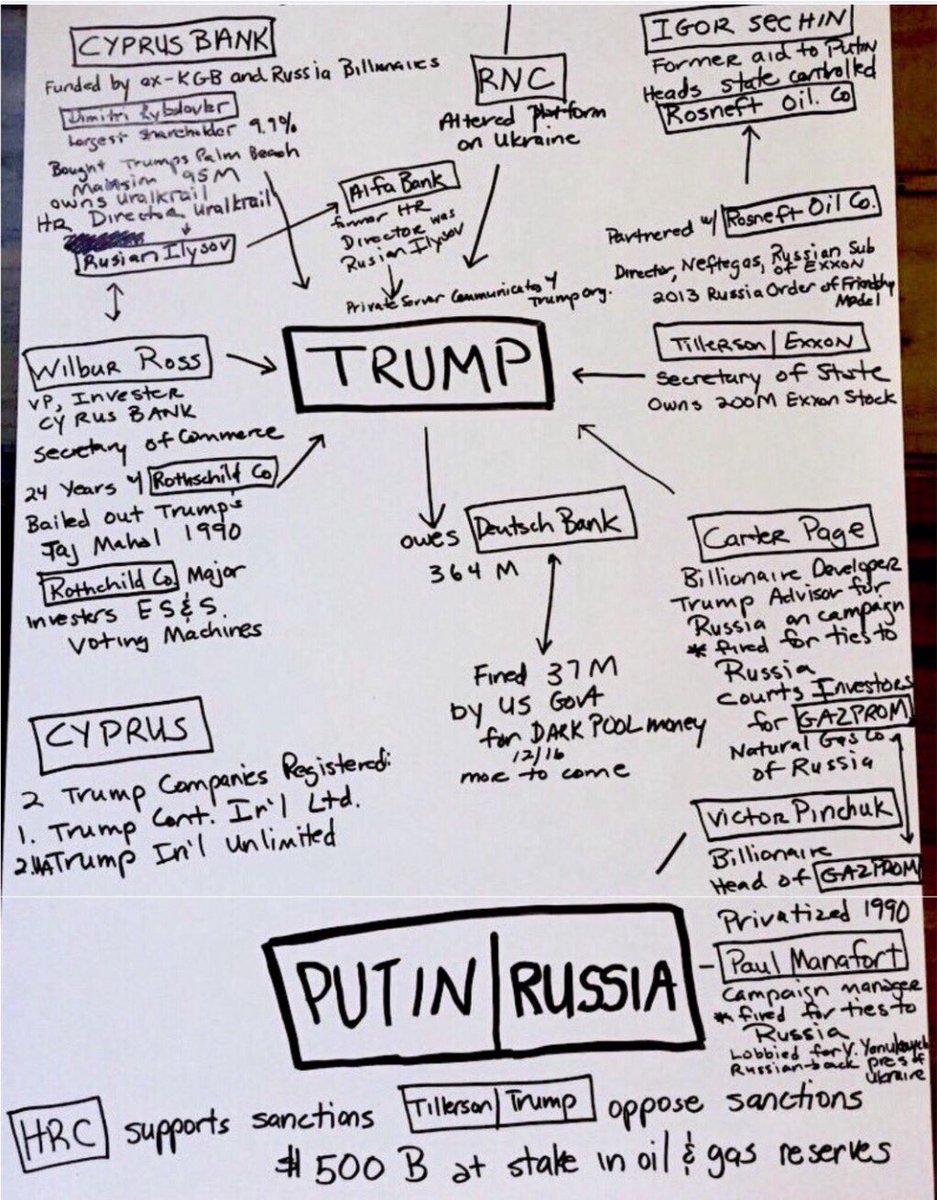 CYPRUS BANK
Funded by ex-KGB and Russia Billionaires
Dimitri Rybolovler
Largest shareholder 9.9%
Bought Trumps Palm Beach
95M
owns Uralkrail
HR Director Uralkrail
Rusian Ilysov
Alfa Bank
former HR
Director was
Rusian Ilysov
Private Server Communicates w/
Trump org.
RNC
Altered platform
on Ukraine
IGOR SECHIN
Former aid to Putin
Heads state controlled
Rosneft Oil. Co
Partnered w/ Rosneft Oil Co.
Director, Neftegas, Russian Sub
of Exxon
2013 Russia Order of Friendship
Medel
TRUMP
Tillerson | EXXON
Secretary of State
Owns 200M Exxon Stock
Wilbur Ross
VP, Invester
CYRUS BANK
Secretary of Commerce
24 Years w/ Rothschild Co
Bailed out Trump's
Taj Mahal 1990
Rothchild Co Major
Investers ES&S.
Voting Machines
owes Deutsch Bank
364 M
Fined 37M
by US Govt
for DARK POOL money
12/16
moe to come
Carter Page
Billionaire Developer
Trump Advisor for
Russia on campaign
* fired for ties to
Russia
Courts Investors
for GAZPROM
Natural Gas Co
of Russia
CYPRUS
2 Trump Companies Registered:
1. Trump Cont. In'l Ltd.
2. Trump In'l Unlimited
Victor Pinchuk
Billionaire
Head of GAZPROM
Privatized 1990
PUTIN | RUSSIA
Paul Manafort
Campaign manager
* fired for ties to
Russia
Lobbied for V. Yanukovych
Russian-back pres of
Ukraine
HRC supports sanctions Tillerson | Trump oppose sanctions
$500 B at stake in oil & gas reserves